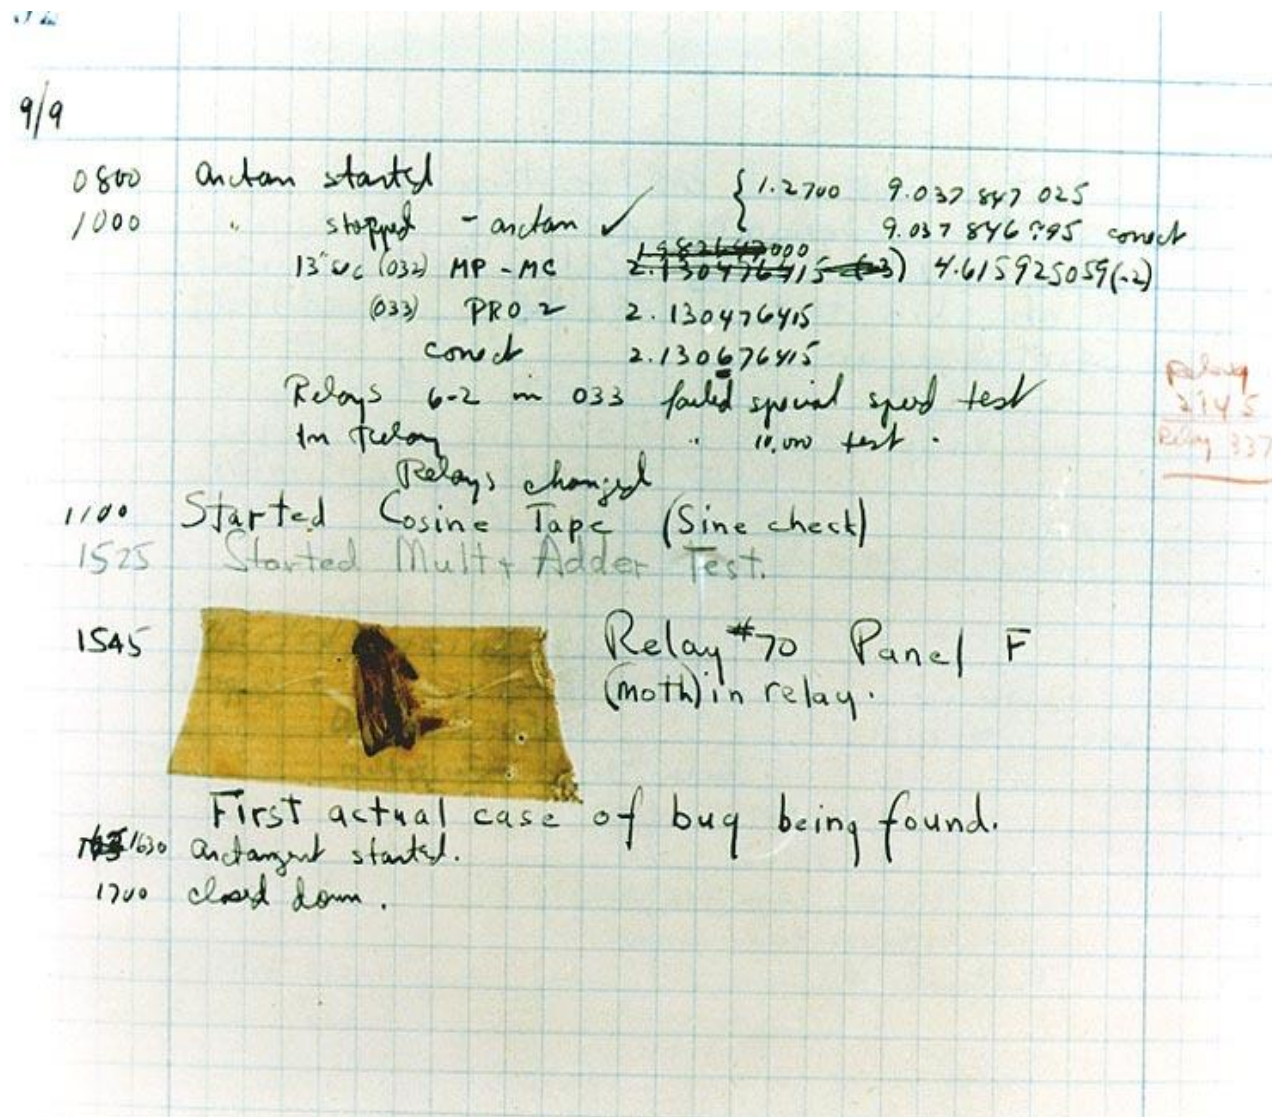 9/9
0800 Antan started
1000 " stopped - antan ✓ { 1.2700 9.037 847 025
9.037 846 995 conect
13" uc (032) MP - MC 2.130476415 (-3) 4.615925059(-2)
(033) PRO 2 2.130476415
conect 2.130676415
Relays 6-2 in 033 failed special speed test
In Relay " 10,000 test .
Relays changed
1100 Started Cosine Tape (Sine check)
1525 Started Mult + Adder Test.
1545 Relay #70 Panel F
(moth) in relay.
First actual case of bug being found.
1630 Antangent started.
1700 closed down.
Relay
2145
Relay 337